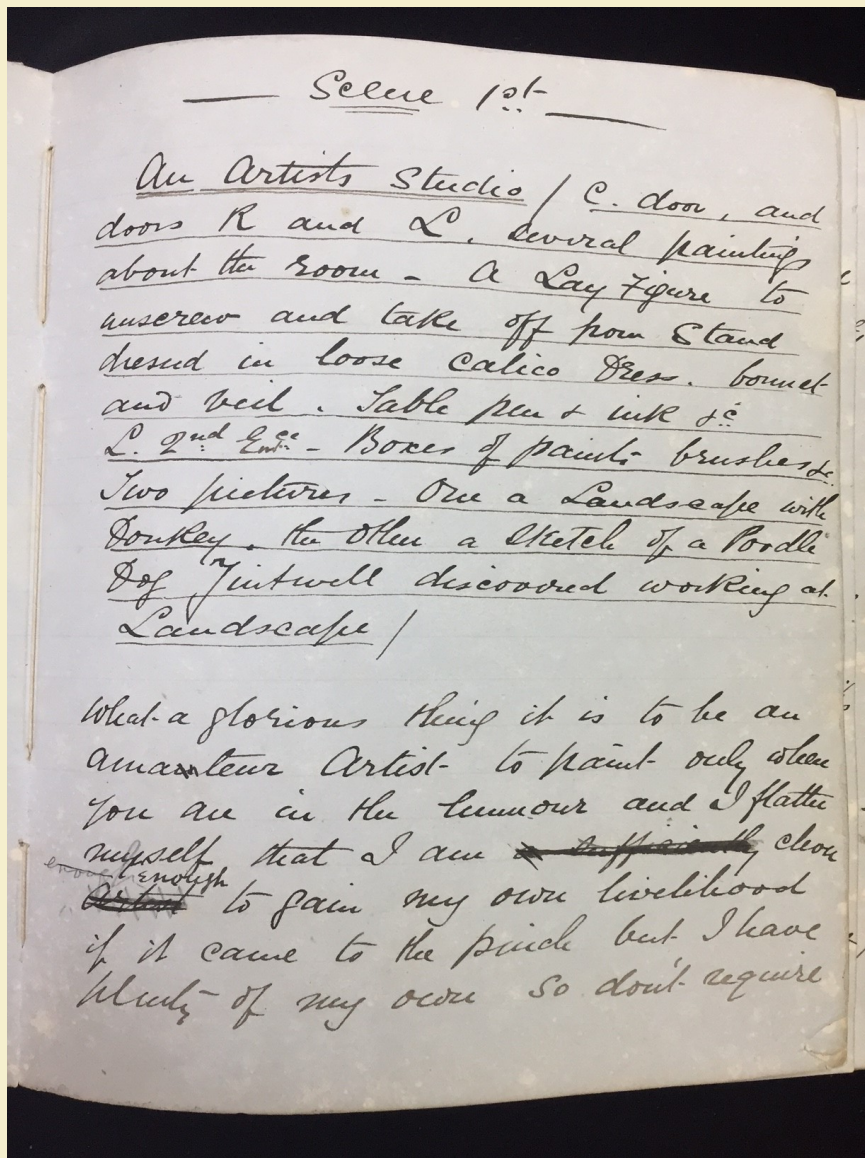 Scene 1st
An Artists Studio / C. door, and
doors R and L. several paintings
about the room - A Lay Figure to
unscrew and take off from Stand
dressed in loose calico Dress. bonnet
and veil. Table pen & ink &c
L. 2nd Entce - Boxes of paints brushes &c.
Two pictures - One a Landscape with
Donkey. the other a Sketch of a Poodle
Dog Tintwell discovered working at
Landscape /
What a glorious thing it is to be an
amateur Artist to paint only when
you are in the humour and I flatter
myself that I am a sufficiently clever
enough enough
Artist to gain my own livelihood
if it came to the pinch but I have
plenty of my own so don't require